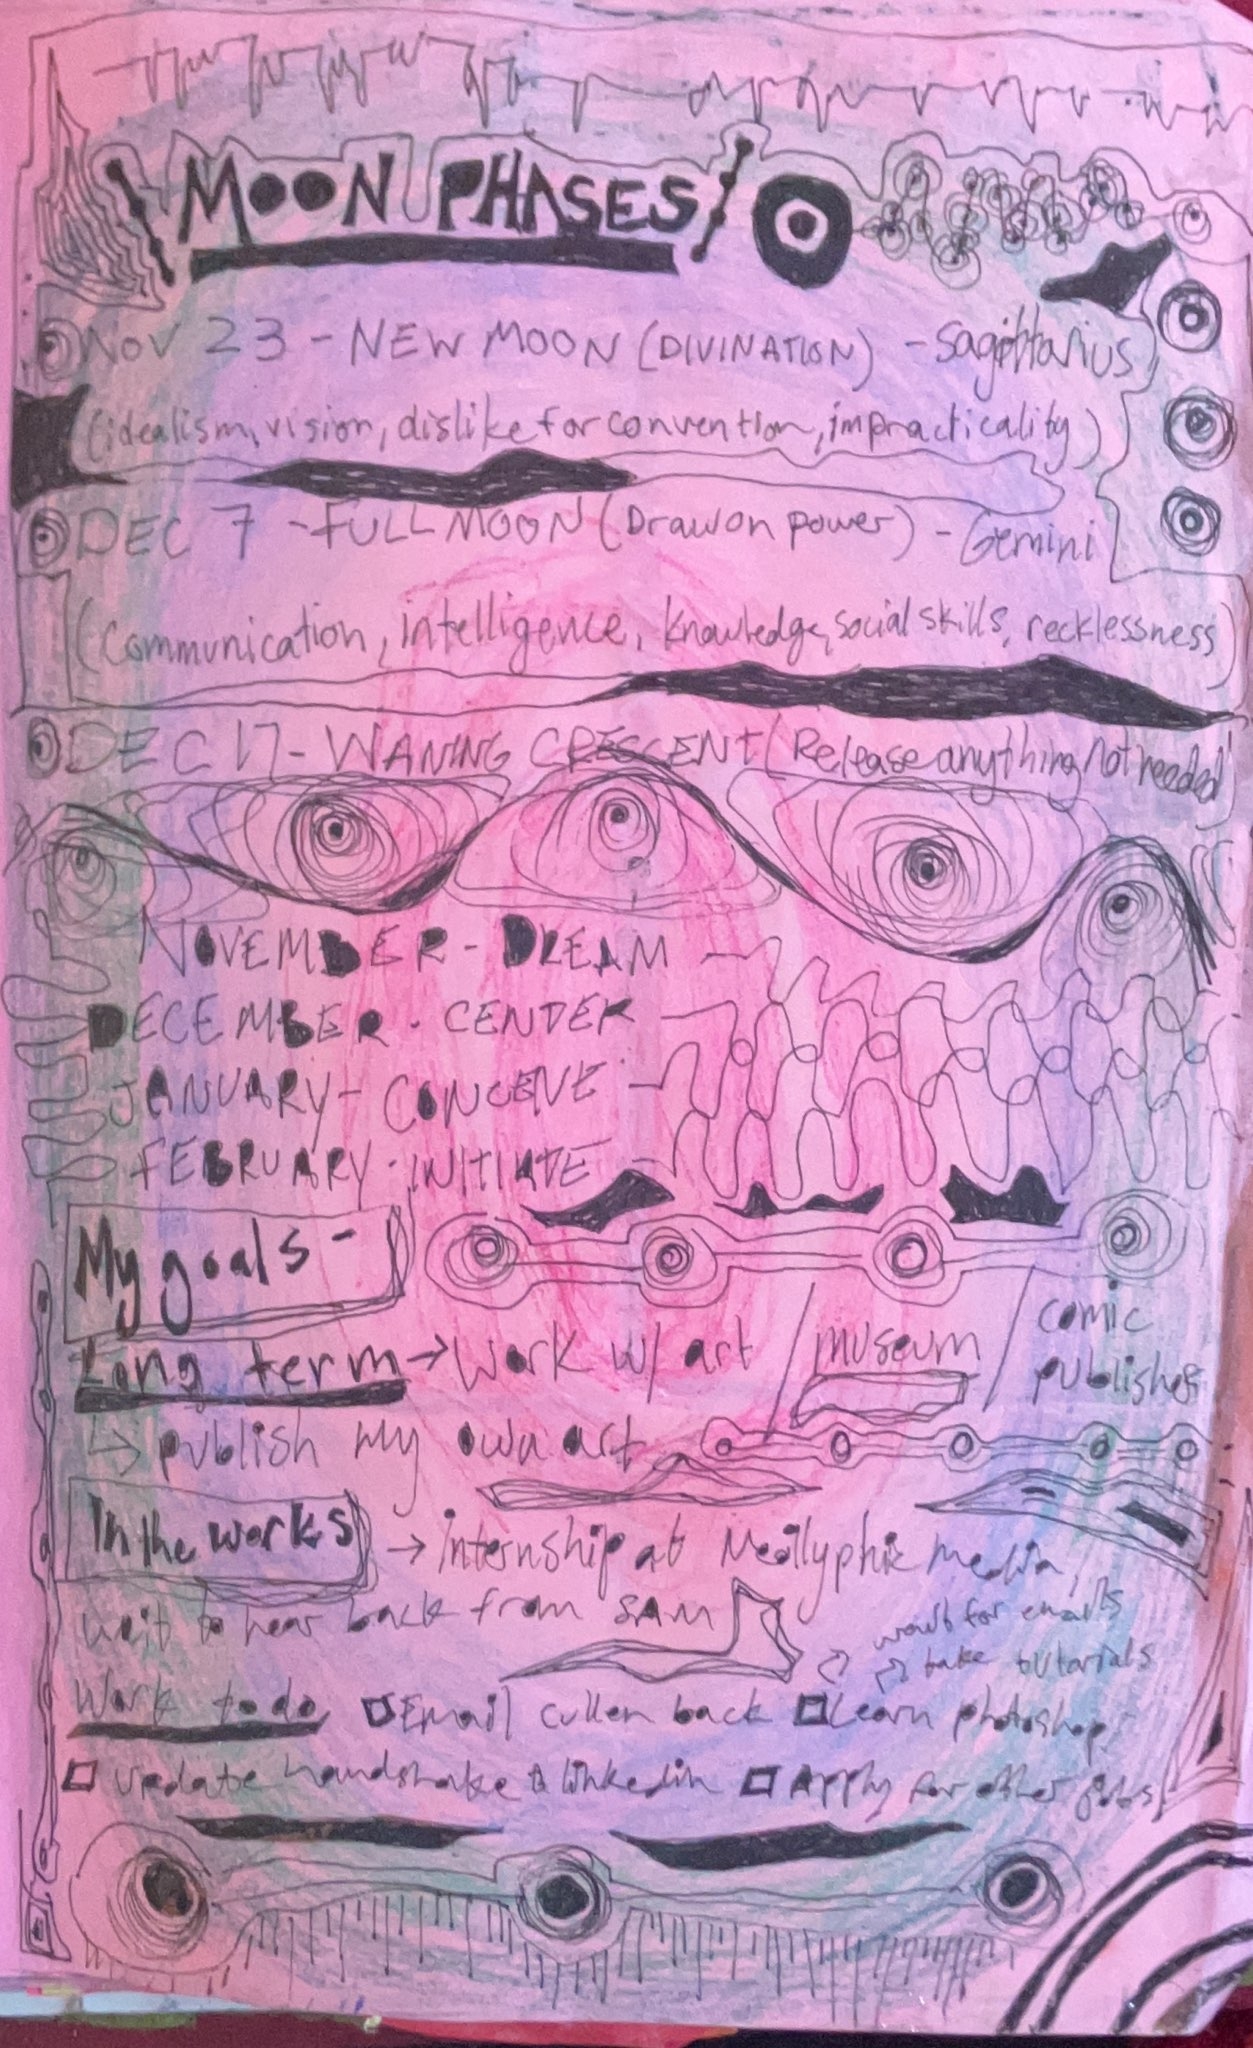 MOON PHASES
NOV 23 - NEW MOON (DIVINATION) - Sagittarius
(idealism, vision, dislike for convention, impracticality)
DEC 7 - FULL MOON (Draw on power) - Gemini
(communication, intelligence, knowledge, social skills, recklessness)
DEC 17 - WANING CRESCENT (Release anything not needed)
NOVEMBER - DREAM
DECEMBER - CENTER
JANUARY - CONCEIVE
FEBRUARY - INITIATE
My goals -
Long term → Work w/ art / museum / comic publisher
↳ publish my own art
In the works → internship at media,
wait to hear back from SAM
wait for emails
take tutorials
Work to do □ Email cullen back □ Learn photoshop
□ update handshake & linkedin □ Apply for other jobs